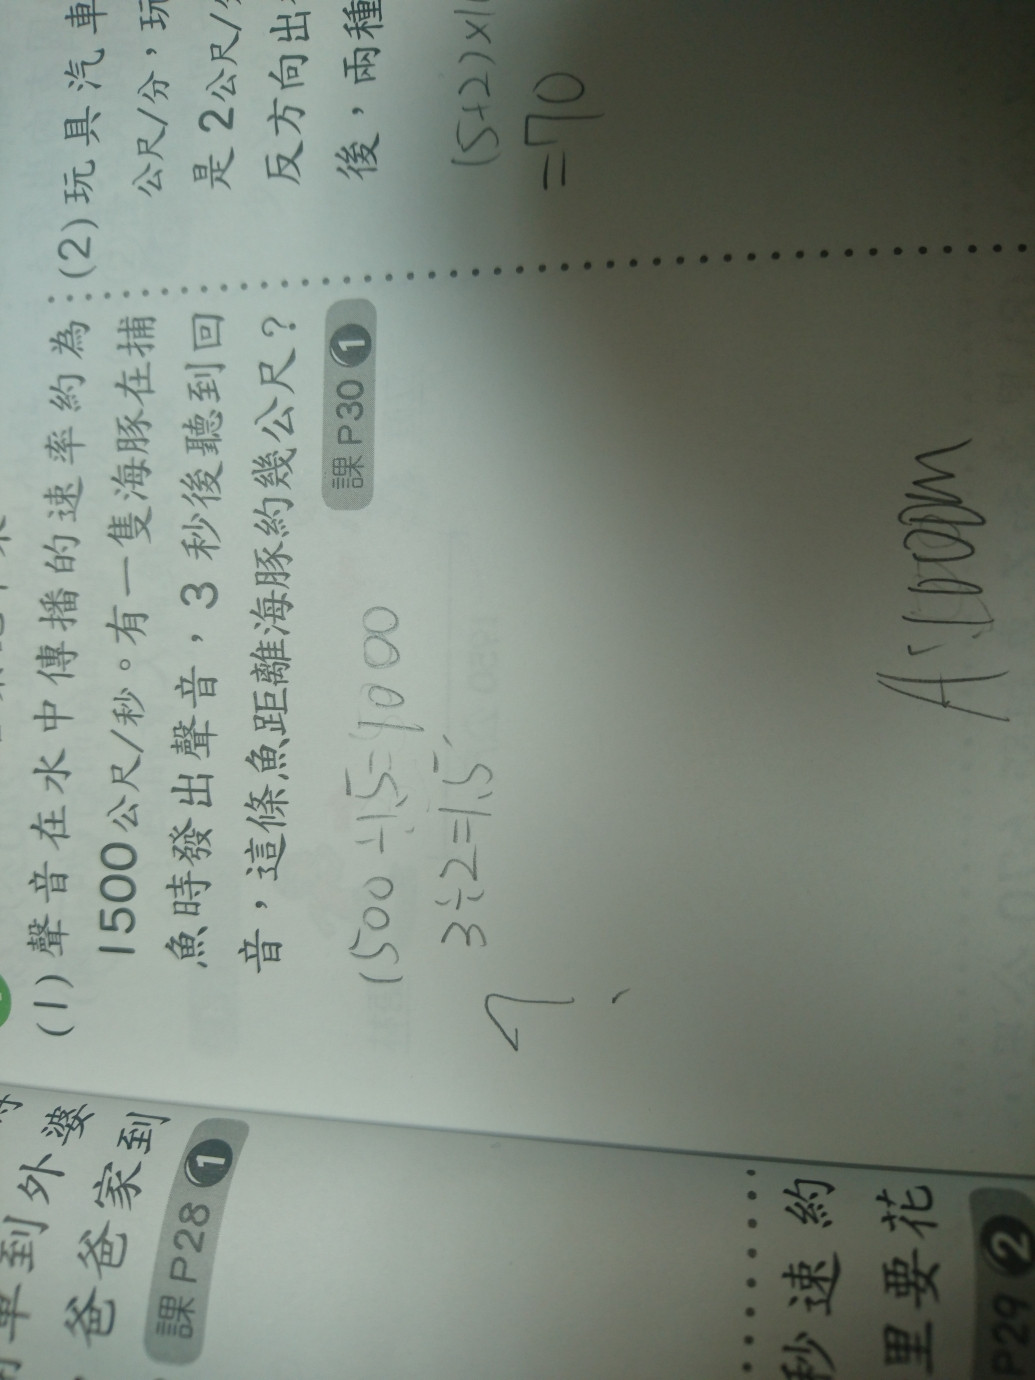 (1) 聲音在水中傳播的速率約為
1500公尺/秒。有一隻海豚在捕
魚時發出聲音，3 秒後聽到回
音，這條魚距離海豚約幾公尺？
課 P30 1
1500÷1.5=1000
3÷2=1.5
(2) 玩具汽車
公尺/分，玩
是2公尺/
反方向出
後，兩種
(5+2)×1
=70
到外婆
，爸爸家到
課 P28 1
秒速約
里要花
P29 2